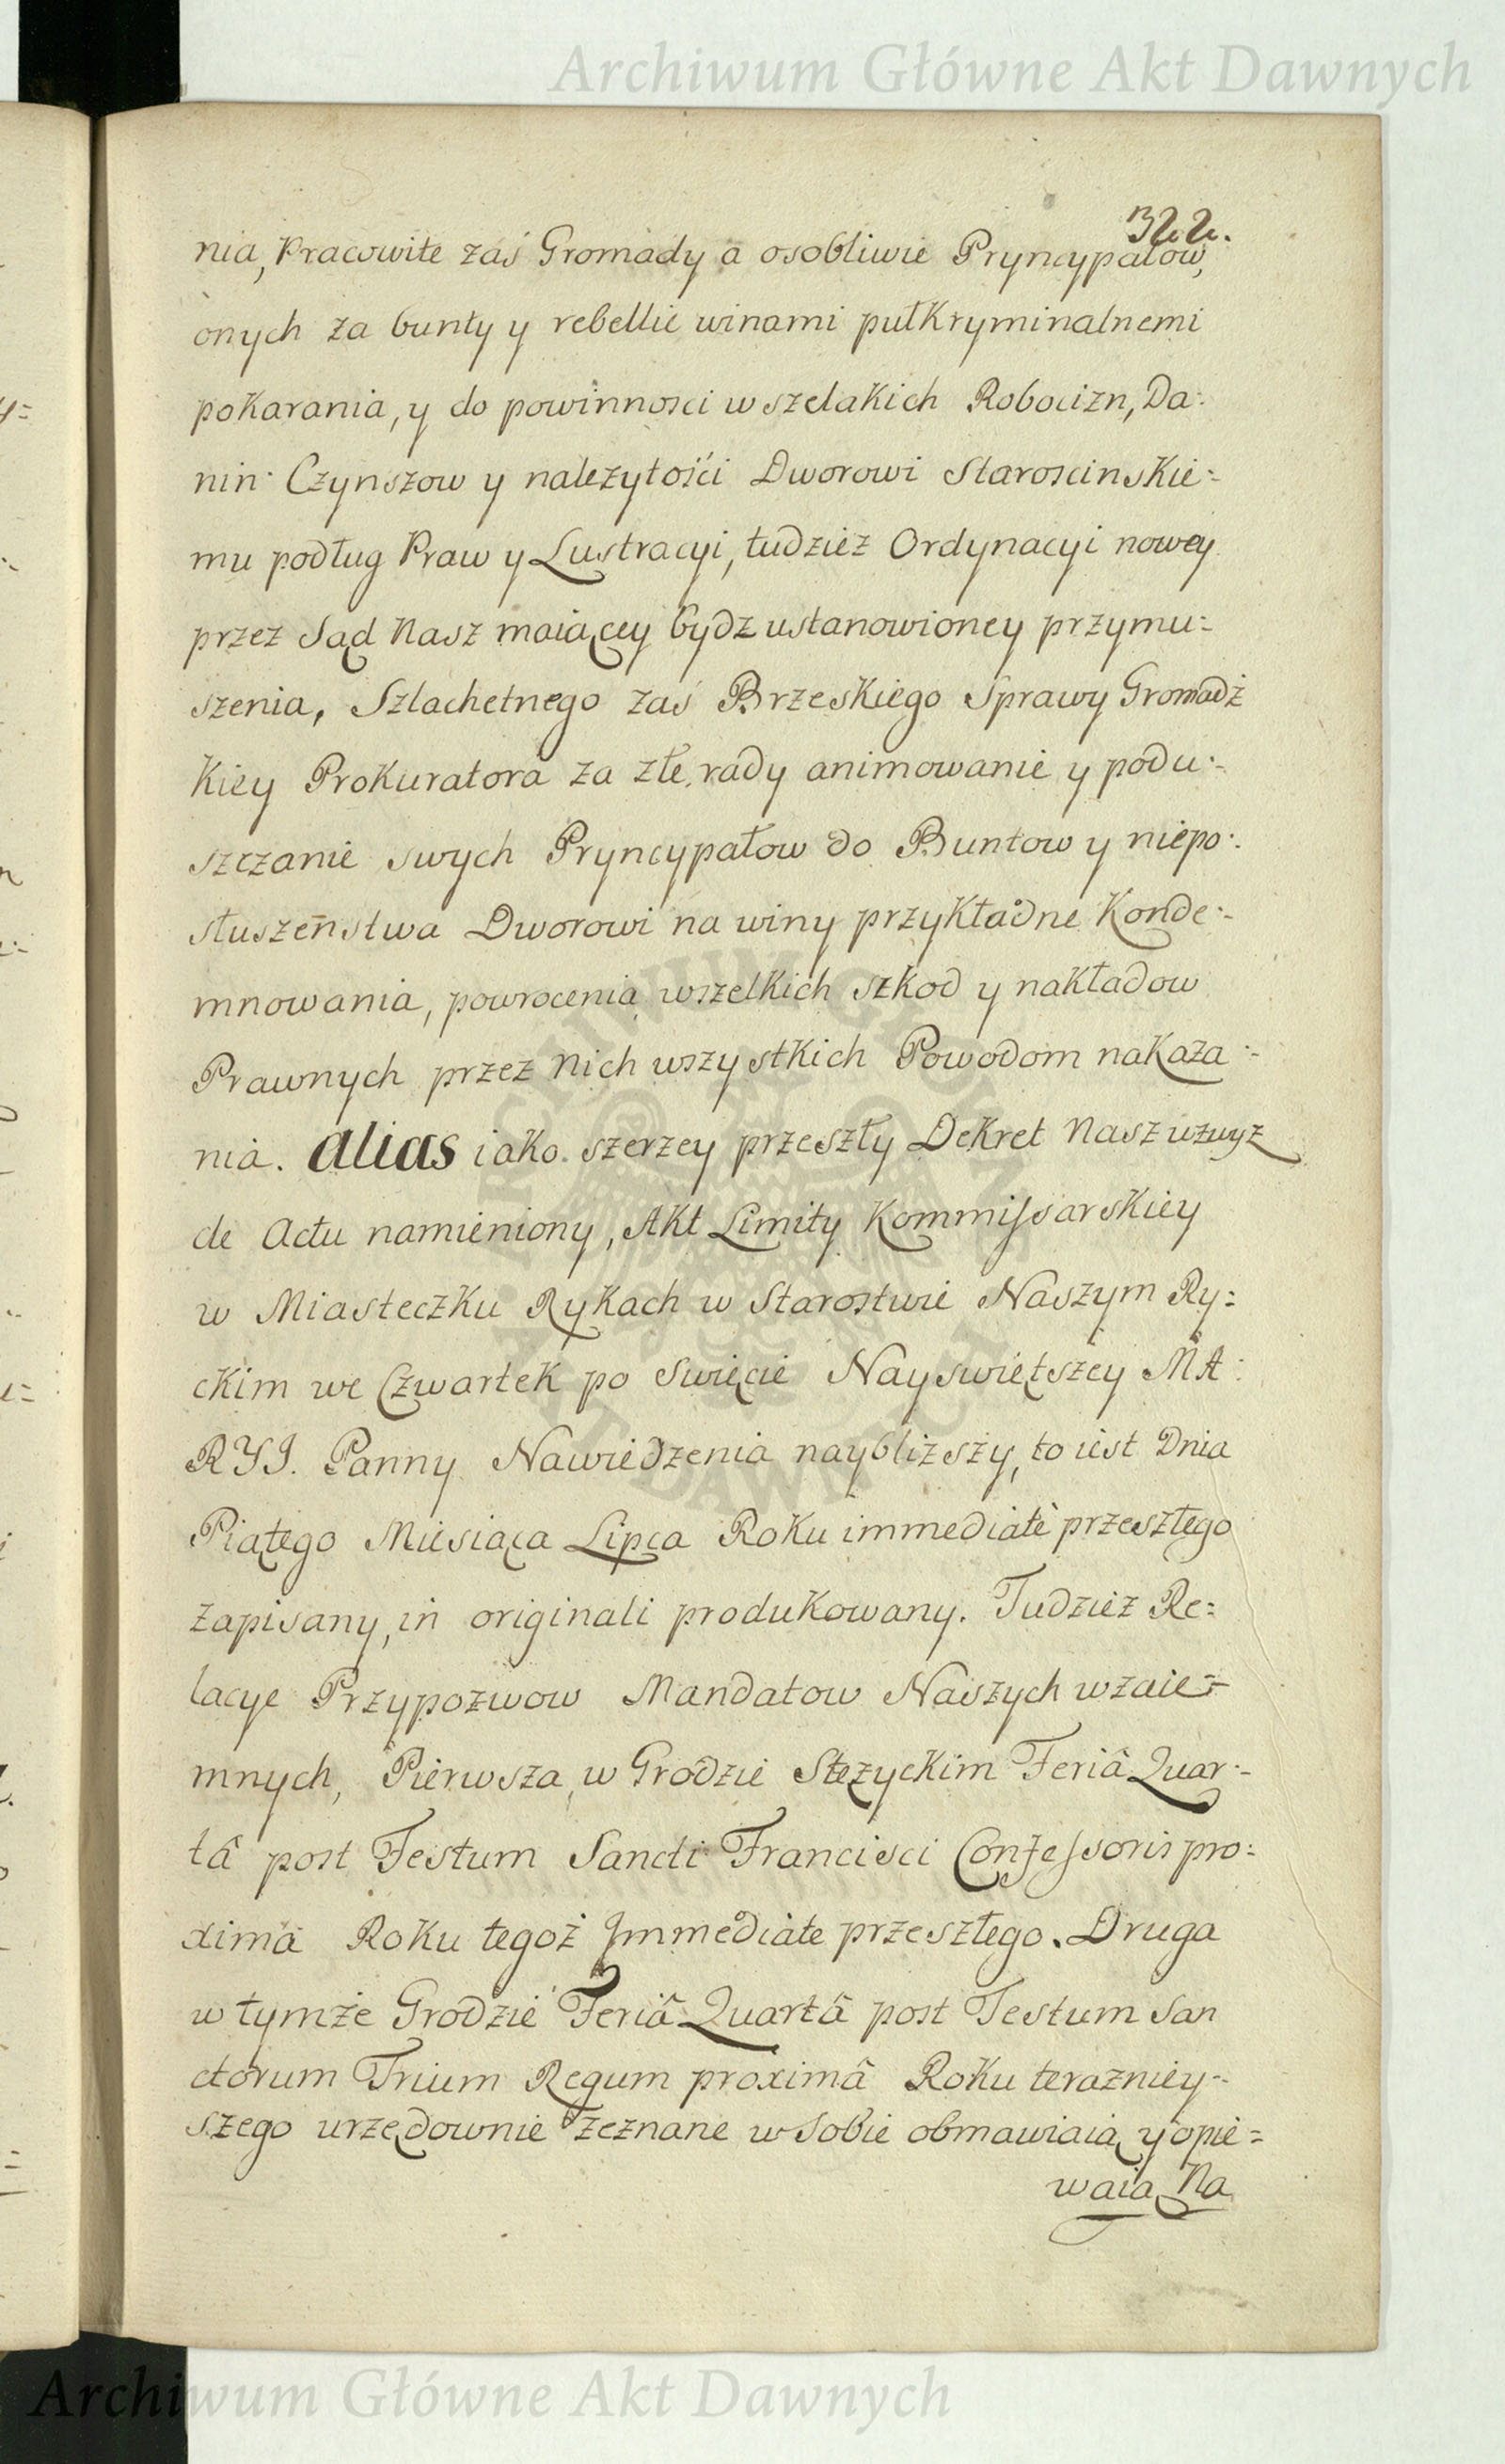 Archiwum Główne Akt Dawnych
322.
nia, Pracowite zaś Gromady a osobliwie Pryncypałow,
onych za bunty y rebellie winami pułkryminalnemi
pokarania, y do powinnosci wszelakich Robocizn, Da:
nin Czynszow y należytośći Dworowi Staroscinskie=
mu podług Praw y Lustracyi, tudzież Ordynacyi nowey
przez Sąd Nasz maiącey bydz ustanowioney przymu=
szenia, Szlachetnego zaś Brzeskiego Sprawy Gromadż
kiey Prokuratora za złe rady animowanie y podu:-
szczanie swych Pryncypałow do Buntow y niepo:
słuszeństwa Dworowi na winy przykładne Konde:-
mnowania, powrocenia wszelkich szkod y nakładow
Prawnych przez Nich wszystkich Powodom nakaza:-
nia. alias iako szerzey przeszły Dekret Nasz wzwyz
de Actu namieniony, Akt Limity Kommissarskiey
w Miasteczku Rykach w Starostwie Naszym Ry=
ckim we Czwartek po Swięcie Nayswiętszey MA:
RYI. Panny Nawiedzenia naybliższy, to iest Dnia
Piątego Miesiąca Lipca Roku immediatè przeszłego
zapisany, in originali produkowany. Tudzież Re=
lacye Przypozwow Mandatow Naszych wzaie=
mnych, Pierwsza w Grodzie Stężyckim Feriâ Quar:-
tâ post Festum Sancti Francisci Confessoris pro=
ximâ Roku tegoż Immediate przeszłego. Druga
w tymże Grodzie Feriâ Quartâ post Festum San
ctorum Trium Regum proximâ Roku terazniey-
szego urzędownie zeznane w Sobie obmawiaią y opie=
waią Na
ARCHIWUM GŁÓWNE AKT DAWNYCH
Archiwum Główne Akt Dawnych